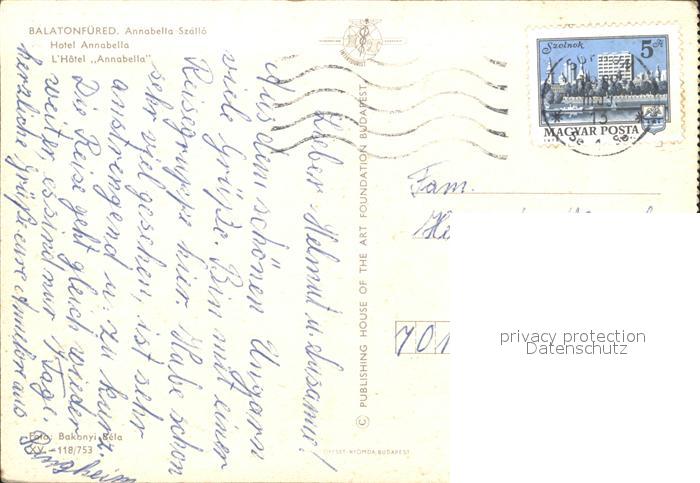 BALATONFÜRED. Annabella Szálló
Hotel Annabella
L'Hôtel „Annabella"
Lieber Helmut u. Susanne!
Aus dem schönen Ungarn
viele Grüße. Bin mit einer
Reisegruppe hier. Habe schon
sehr viel gesehen, ist sehr
anstrengend u. zu kurz.
Die Reise geht gleich wieder
weiter, es sind nur 7 Tage.
herzliche Grüße eure aus
Foto: Bakonyi Béla
XV.-118/753
© PUBLISHING HOUSE OF THE ART FOUNDATION BUDAPEST
OFFSET-NYOMDA, BUDAPEST
Szolnok
5 Ft
MAGYAR POSTA
Fam.
701
privacy protection
Datenschutz